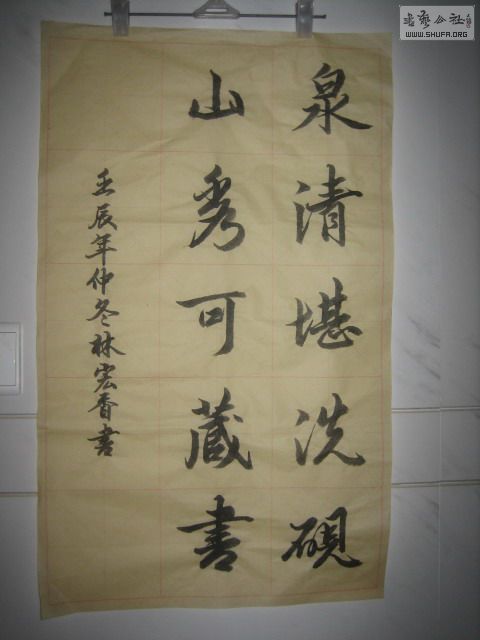 泉清堪洗硯
山秀可藏書
壬辰年仲冬林宏香書
書藝公社
WWW.SHUFA.ORG